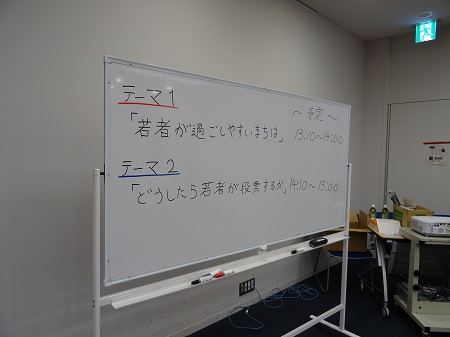 テーマ1
～予定～
「若者が過ごしやすいまちは」 13:10～14:00
テーマ2
「どうしたら若者が投票するか」 14:10～15:00